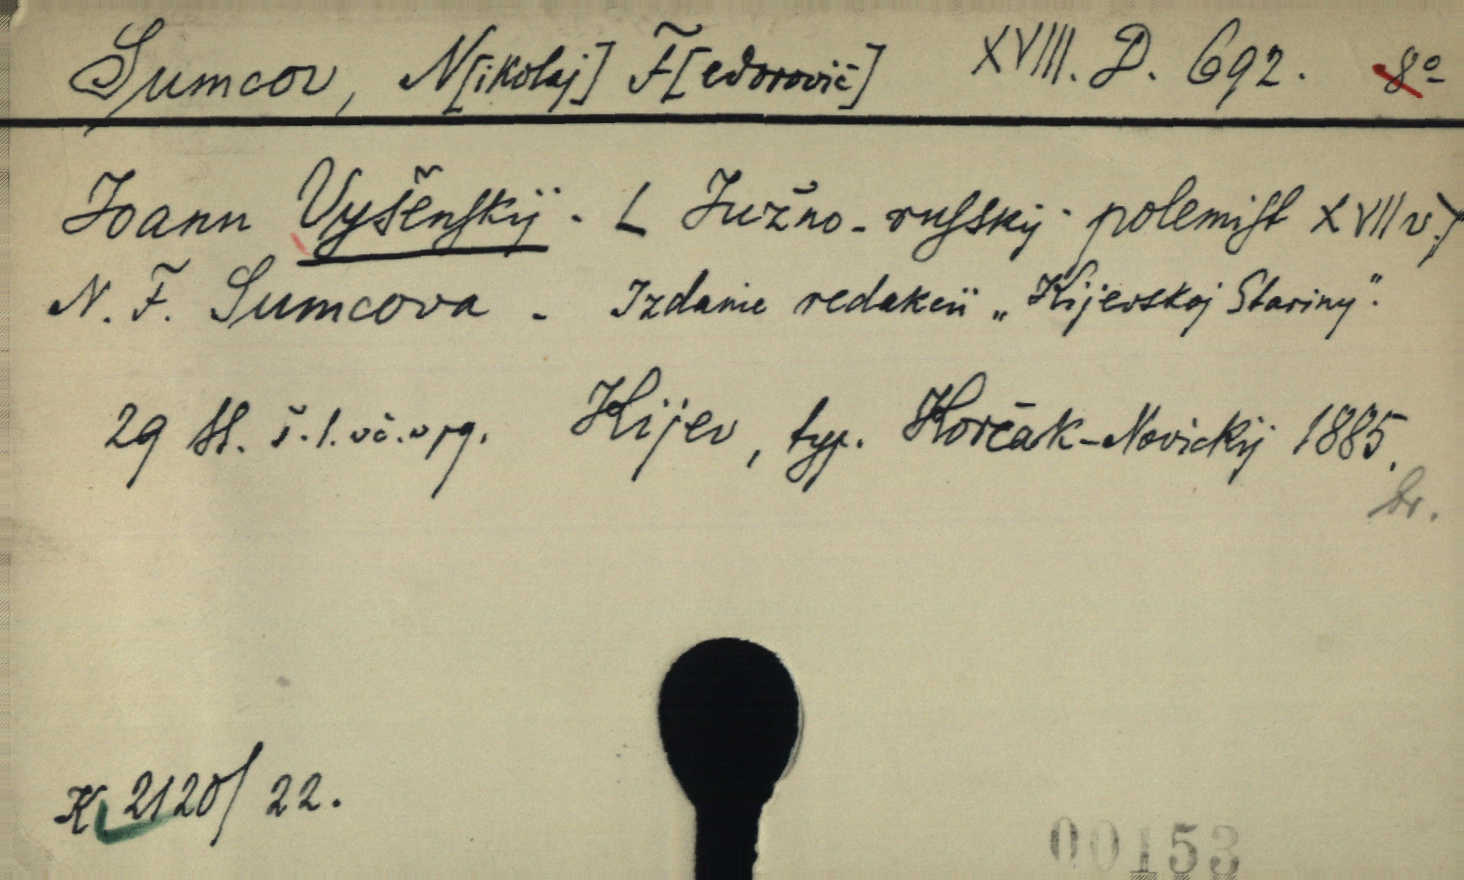 Sumcov, N[ikolaj] F[edorovič] XVIII. D. 692. 8º
Ioann Vyšenskij. ( Južno-russkij polemist XVII v.)
N. F. Sumcova. Izdanie redakcii „Kijevskoj Stariny".
29 st. Kijev, typ. Korčak-Novickij 1885.
br.
K 2120/22.
00153